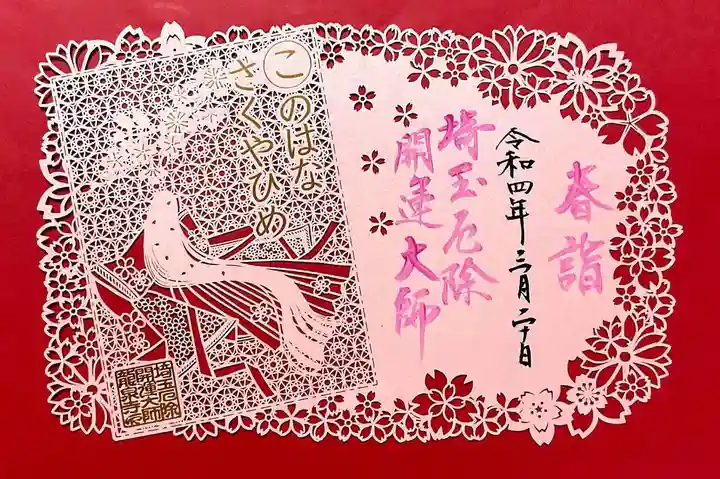 春詣
令和四年三月二十日
埼玉厄除
開運大師
このはな
さくやひめ
埼玉厄除
開運大師
龍泉寺